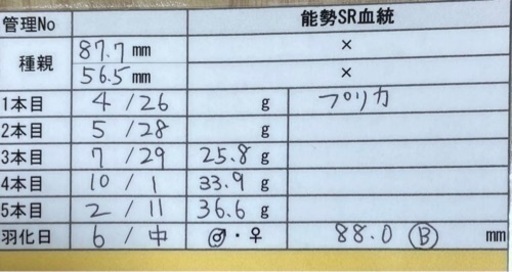 管理No 能勢SR血統
種親 87.7 mm ×
56.5 mm ×
1本目 4 / 26 g プリカ
2本目 5 / 28 g
3本目 7 / 29 25.8 g
4本目 10 / 1 33.9 g
5本目 2 / 11 36.6 g
羽化日 6 / 中 ♂・♀ 88.0 B mm